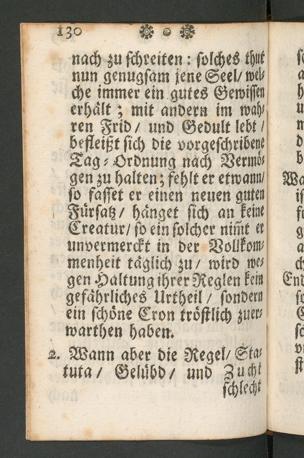 130
nach zu schreiten: solches thut
nun genugsam jene Seel/ wel-
che immer ein gutes Gewissen
erhält; mit andern im wah-
ren Frid/ und Gedult lebt/
befleißt sich die vorgeschribene
Tag-Ordnung nach Vermö-
gen zu halten; fehlt er etwann/
so fasset er einen neuen guten
Fürsatz/ hänget sich an keine
Creatur/ so ein solcher nimt er
unvermerckt in der Vollkom-
menheit täglich zu/ wird we-
gen Haltung ihrer Reglen kein
gefährliches Urtheil/ sondern
ein schöne Cron tröstlich zuer-
warthen haben.
2. Wann aber die Regel/ Sta-
tuta/ Gelübd/ und Zucht
schlecht